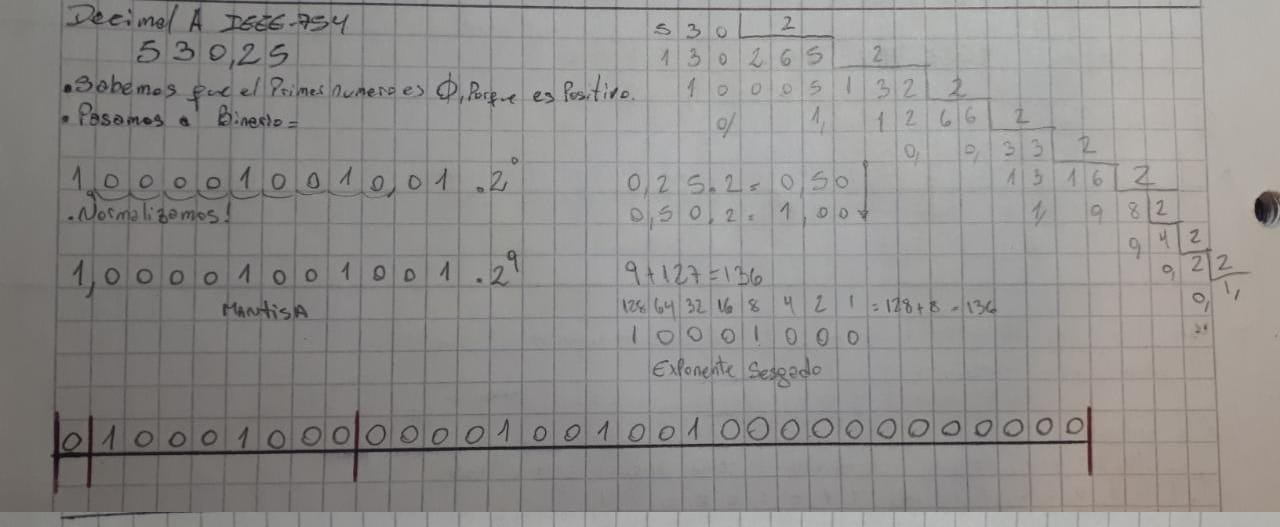 Decimal A IEEE-754
530,25
• Sabemos que el Primer numero es 0, Porque es Positivo.
• Pasamos a Binario =
1 0 0 0 0 1 0 0 1 0, 0 1 . 2⁰
• Normalizamos!
1, 0 0 0 0 1 0 0 1 0 0 1 . 2⁹
MANTISA
5 3 0 2
1 3 0 2 6 5 2
1 0 0 0 5 1 3 2 2
0/ 1, 1 2 6 6 2
0, 0, 3 3 2
1 3 1 6 2
1, 0 8 2
0 4 2
0, 2 2
0, 1,
0,25.2 = 0,50
0,50.2 = 1,00
9+127=136
128 64 32 16 8 4 2 1 = 128+8 = 136
1 0 0 0 1 0 0 0
Exponente Sesgado
0 1 0 0 0 1 0 0 0 0 0 0 0 1 0 0 1 0 0 1 0 0 0 0 0 0 0 0 0 0 0 0